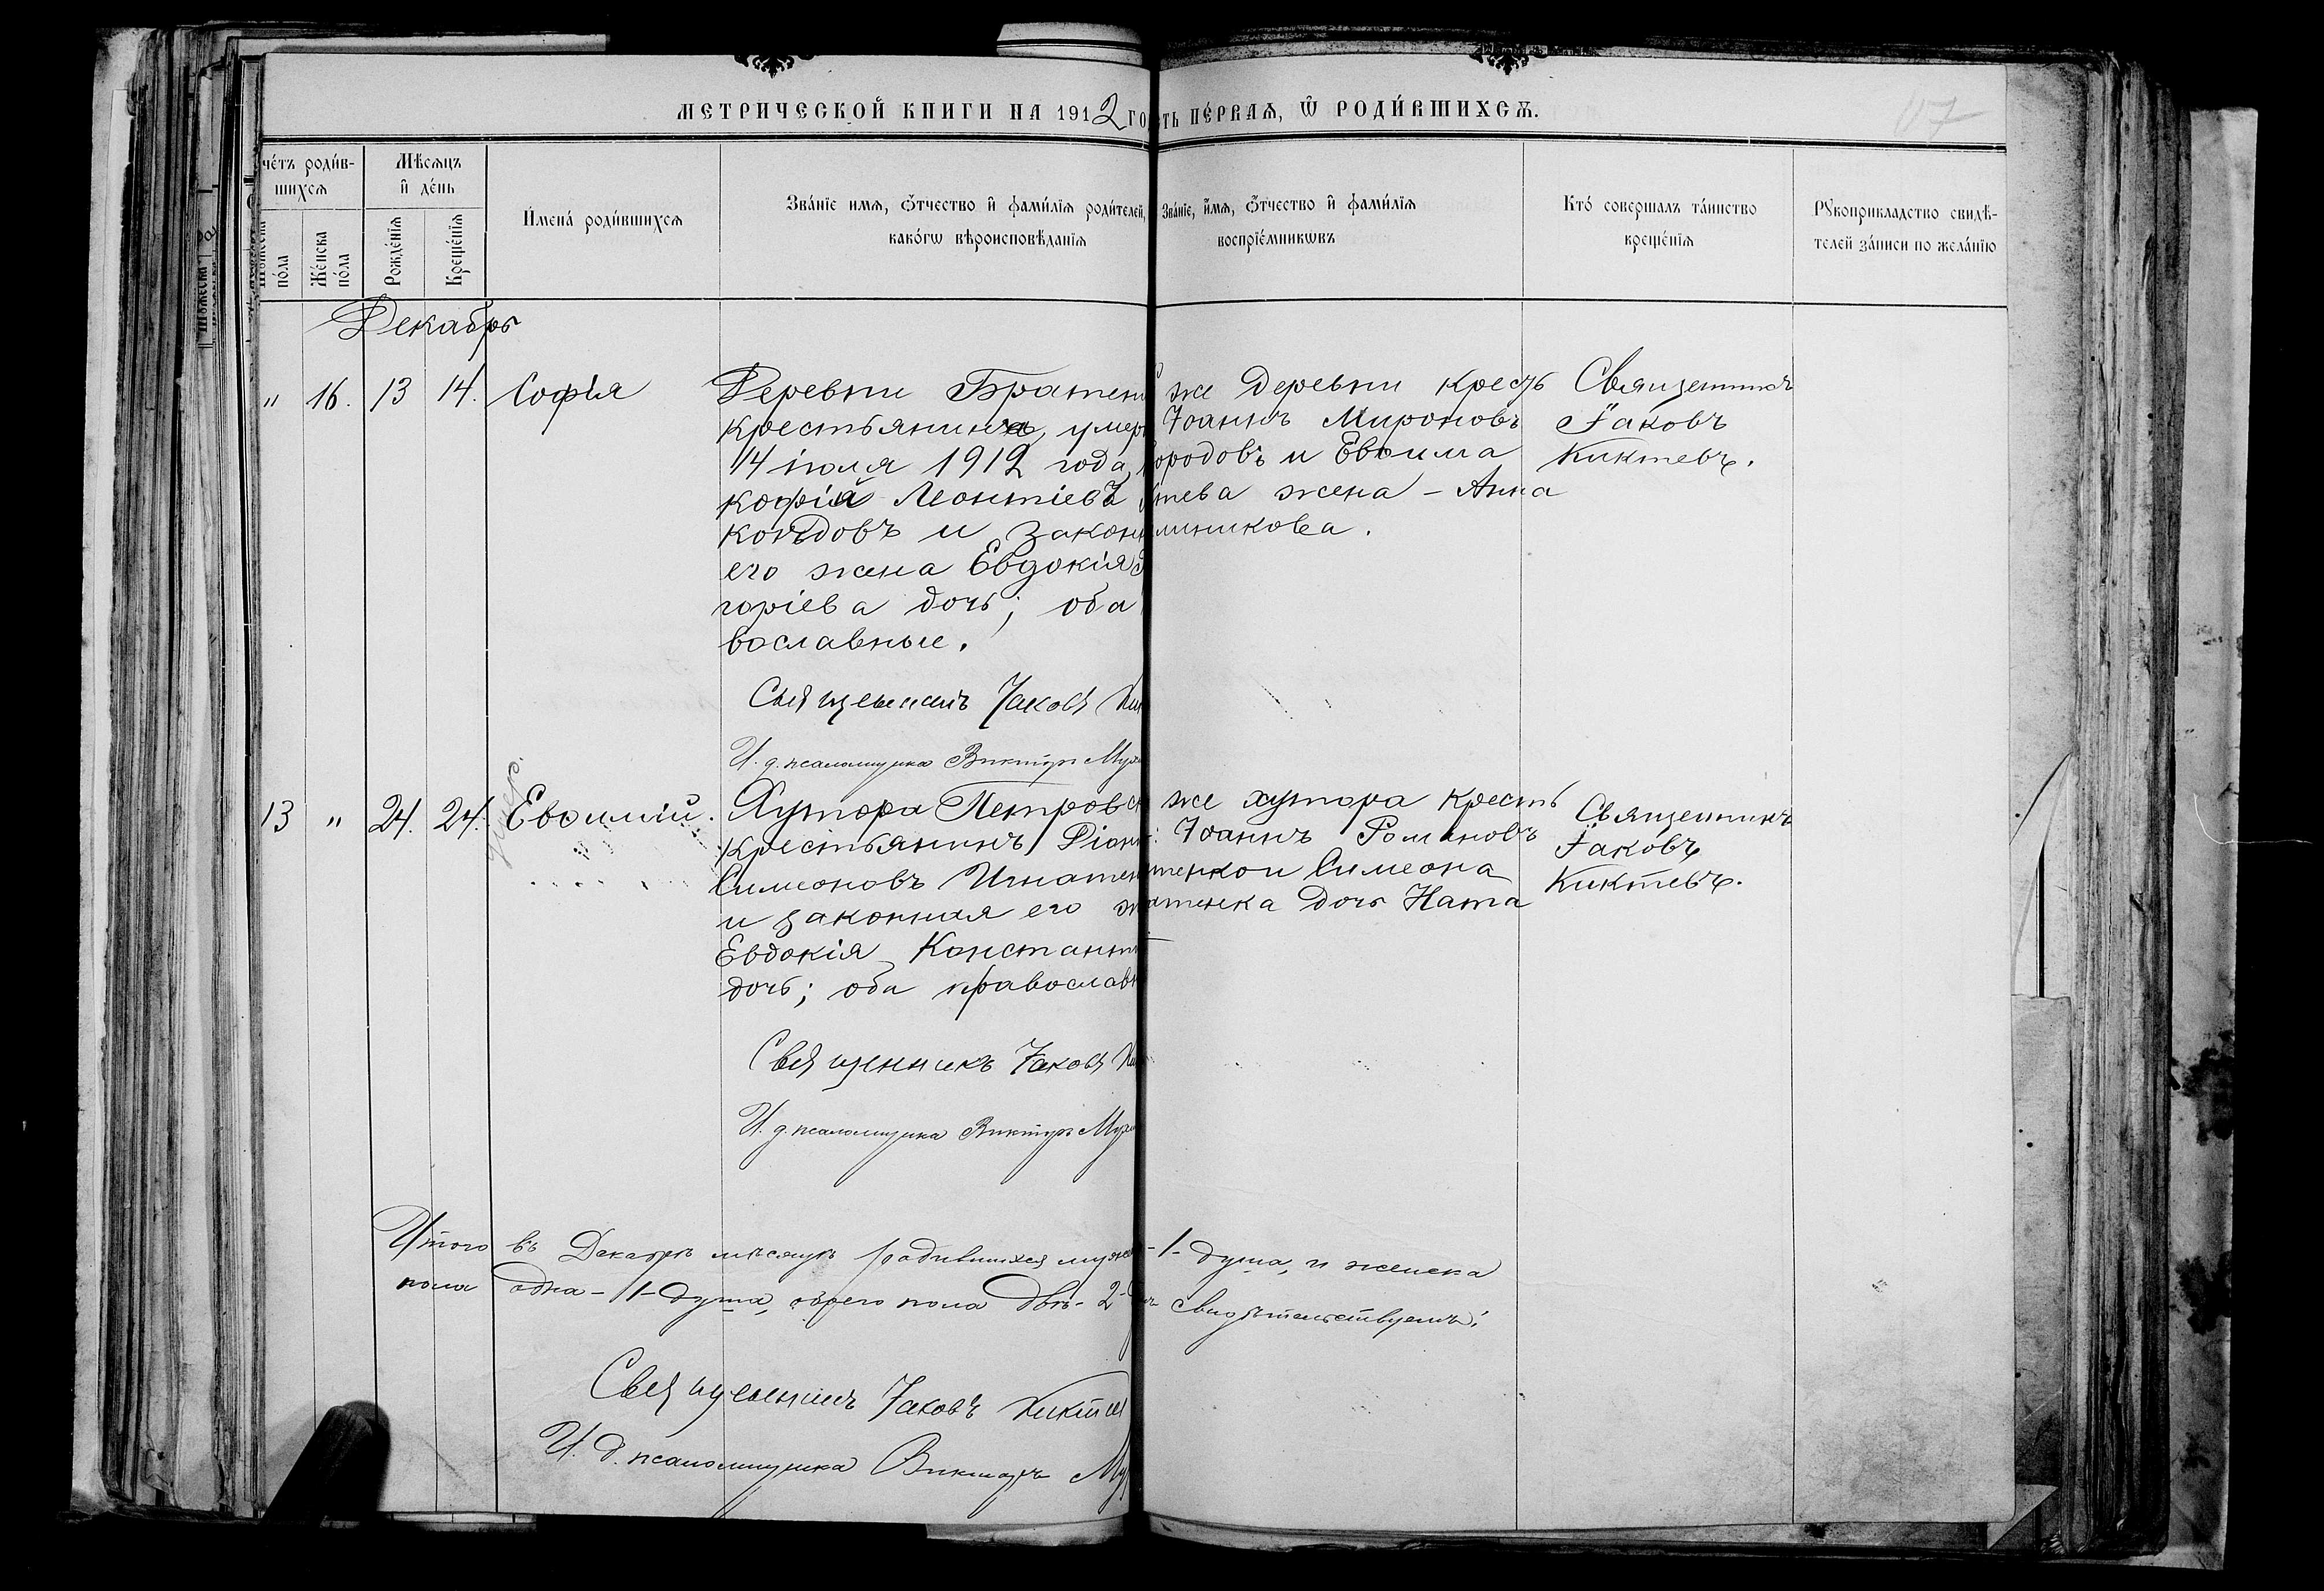 МЕТРИЧЕСКОЙ КНИГИ НА 1912 ГО
сть пе́рваѧ, ѽ роди́вшихсѧ.
117
чéтъ роди́в-
шихсѧ
Мѣсѧцъ
и҆ де́нь
Мꙋжеска
по́ла
Же́нска
по́ла
Рожде́нїѧ
Креще́нїѧ
И҆мена́ роди́вшихсѧ
Зва́нїе имѧ, ѻ҆́тчество и҆ фами́лїѧ роди́телей,
како́гѡ вѣроисповѣ́данїѧ
Зва́нїе, и҆́мѧ, ѻ҆́тчество и҆ фами́лїѧ
воспрїе́мникѡвъ
Кто́ совершалъ та́инство
креще́нїѧ
Рꙋкоприкладство свидѣ-
телей за́писи по жела́нїю
Декабрь
" 16. 13 14. Софія
Деревни Братен
крестьянинъ, умер
14 іюля 1912 года,
кофій Леонтіевъ
кондовъ и закон
его жена Евдокія
горіева дочь; оба
вославные.
Священникъ Іаковъ Ки
И. д. псаломщика Викторъ Му
же деревни кресть
Іоаннъ Мироновъ
ородовъ и Евѳима
тева жена - Анна
линикова.
Священникъ
Іаковъ
Киктевъ.
умер.
13 " 24. 24. Евѳимій.
Хутора Петровс
крестьянинъ Діон
Симеоновъ Игнатен
и законная его ж
Евдокія Констант
дочь; оба православ
Священникъ Іаковъ Ки
И. д. псаломщика Викторъ Му
же хутора кресть
Іоаннъ Романовъ
тенко и Симеона
атенка дочь Ната
Священникъ
Іаковъ
Киктевъ.
Итого въ Декабрѣ мѣсяцѣ родившихся муже - 1 - душа, и женска
пола одна - 1 - душа, обоего пола двѣ - 2 свидѣтельствуемъ:
Священникъ Іаковъ Кикте
И. д. псаломщика Викторъ Му